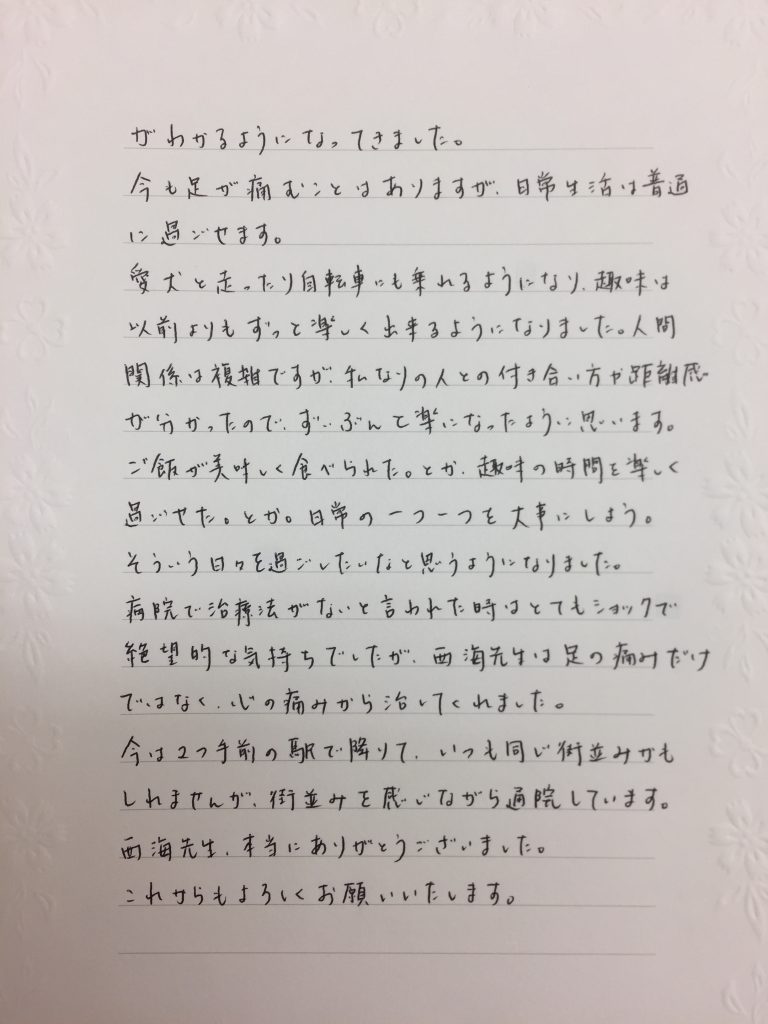 がわかるようになってきました。
今も足が痛むことはありますが、日常生活は普通
に過ごせます。
愛犬と走ったり自転車にも乗れるようになり、趣味は
以前よりもずっと楽しく出来るようになりました。人間
関係は複雑ですが、私なりの人との付き合い方や距離感
が分かったので、ずいぶんと楽になったように思います。
ご飯が美味しく食べられた。とか、趣味の時間を楽しく
過ごせた。とか。日常の一つ一つを大事にしよう。
そういう日々を過ごしたいなと思うようになりました。
病院で治療法がないと言われた時はとてもショックで
絶望的な気持ちでしたが、西海先生は足の痛みだけ
ではなく、心の痛みから治してくれました。
今は2つ手前の駅で降りて、いつも同じ街並みかも
しれませんが、街並みを感じながら通院しています。
西海先生、本当にありがとうございました。
これからもよろしくお願いいたします。